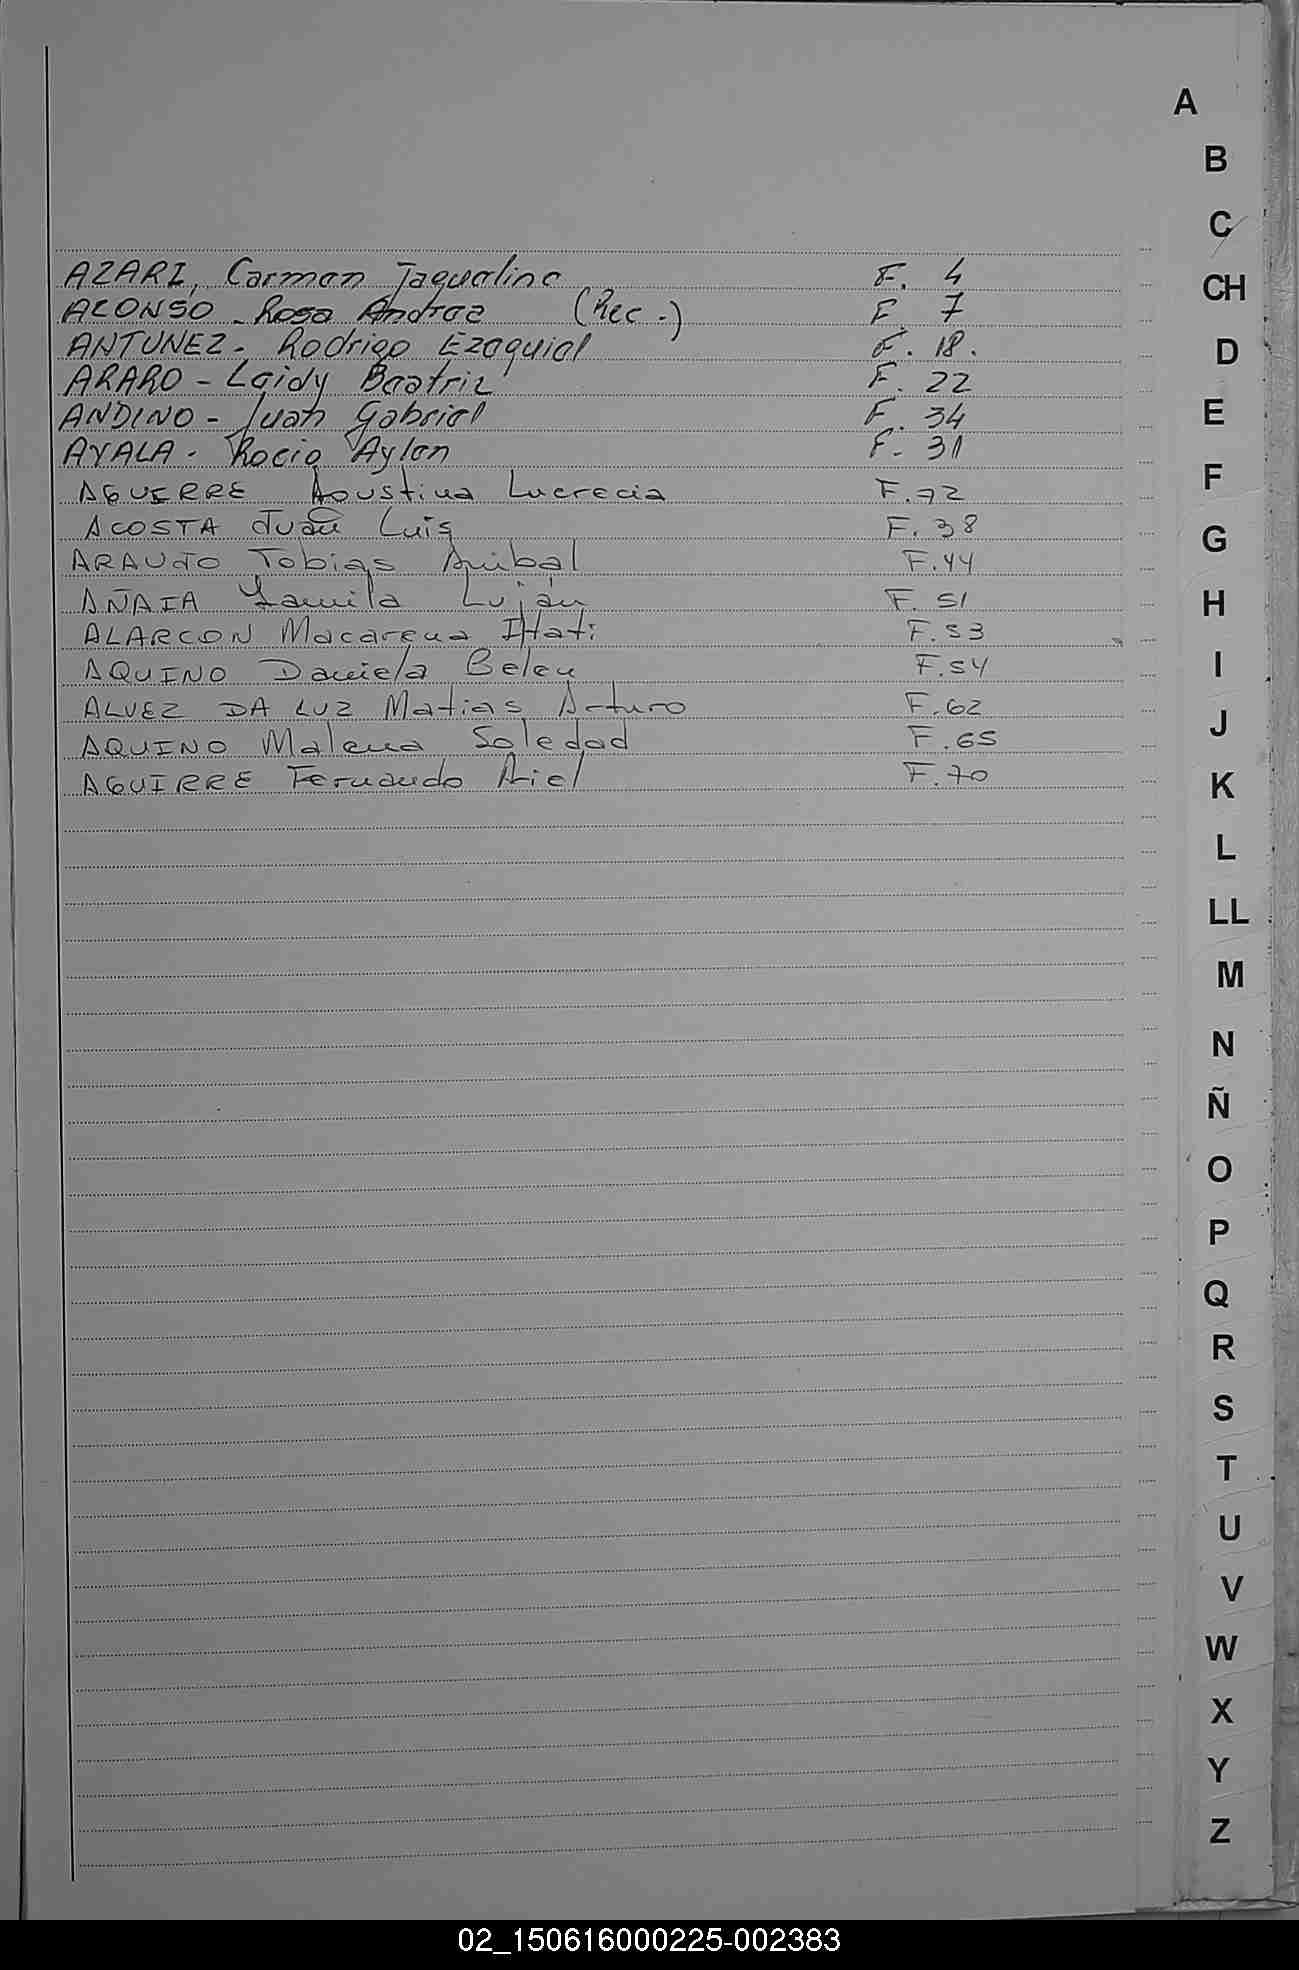 A
B
C
CH
D
E
F
G
H
I
J
K
L
LL
M
N
Ñ
O
P
Q
R
S
T
U
V
W
X
Y
Z
AZARI, Carmen Jaqueline F. 4
ALONSO - Rosa Andrea (Rec.) F. 7
ANTUNEZ - Rodrigo Ezequiel F. 18.
ARARO - Leidy Beatriz F. 22
ANDINO - Juan Gabriel F. 34
AYALA - Rocio Aylen F. 31
AGUERRE Agustina Lucrecia F. 72
ACOSTA Juan Luis F. 38
ARAUJO Tobias Anibal F. 44
AÑAIA Yamila Luján F. 51
ALARCON Macarena Itati F. 53
AQUINO Daniela Belen F. 54
ALVEZ DA LUZ Matias Arturo F. 62
AQUINO Malena Soledad F. 65
AGUIRRE Fernando Ariel F. 70
02_150616000225-002383